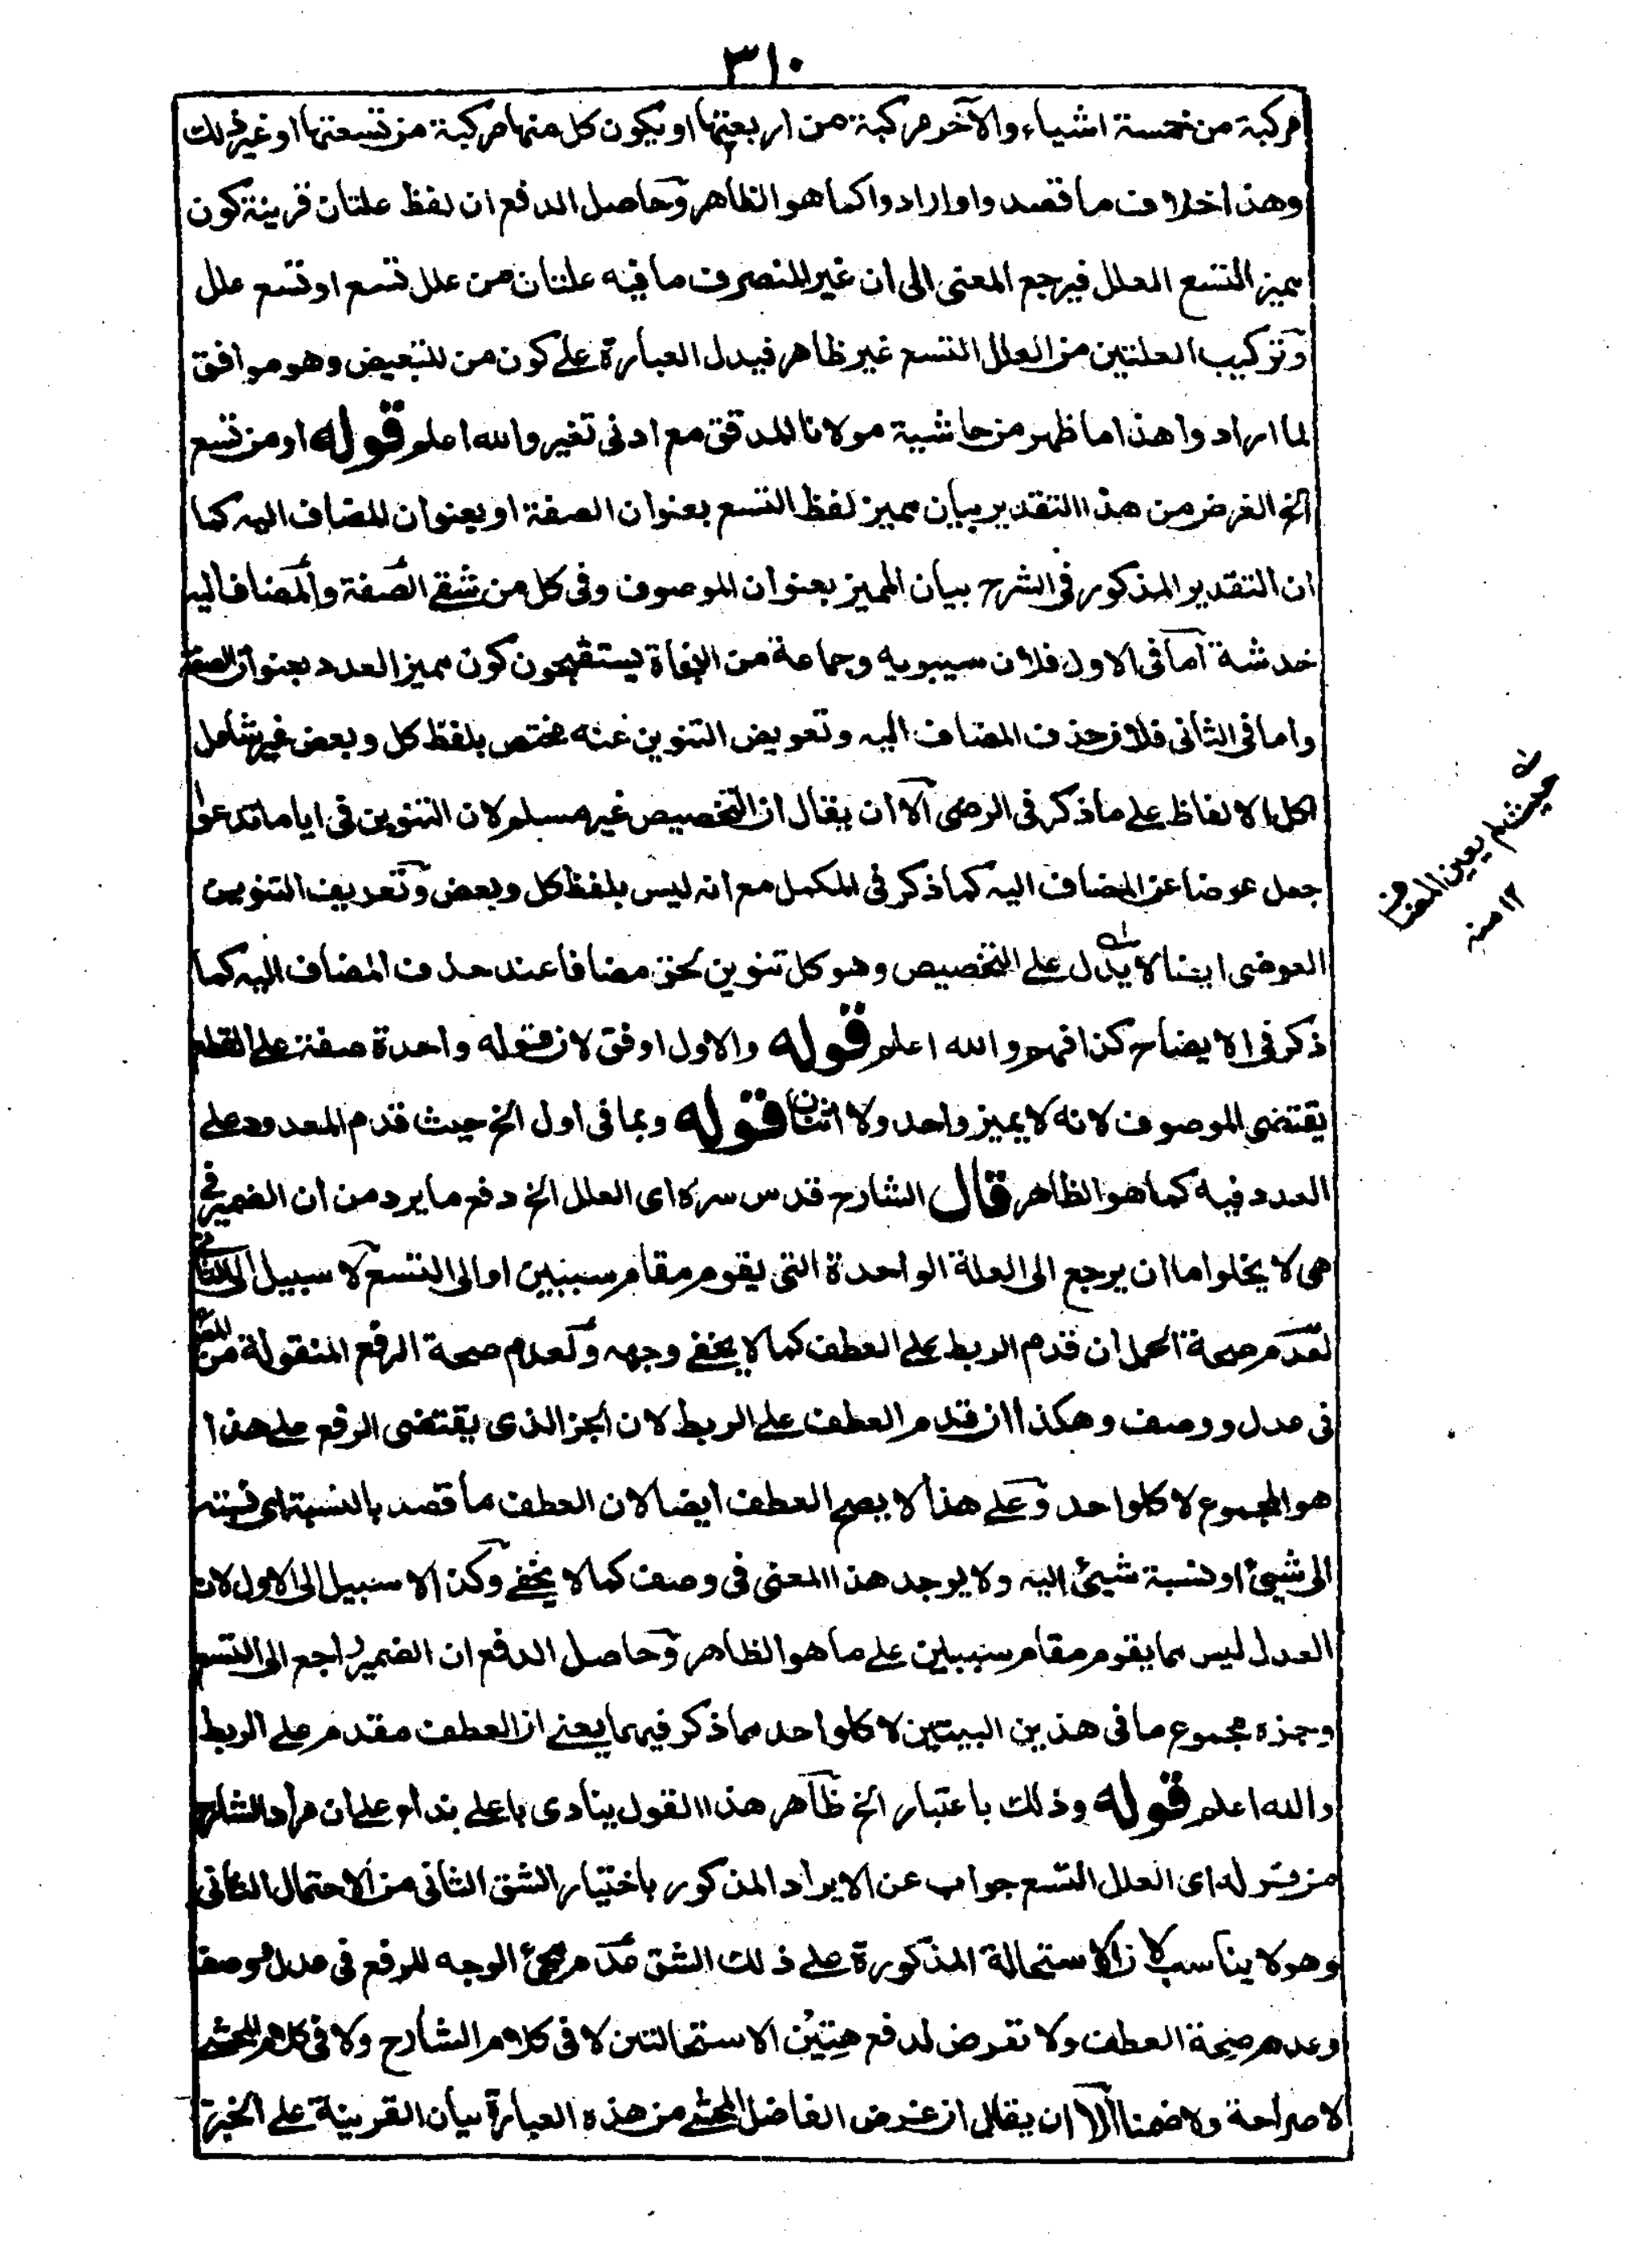 ٣١٠
مركبة من خمسة اشياء والآخر مركبة من اربعتها او يكون كل منها مركبة من تسعتها او غير ذلك
وهذا خلاف ما قصدوا وارادوا كما هو الظاهر وحاصل الدفع ان لفظ علتان قرينة كون
مميز التسع العلل فيرجع المعنى الى ان غير المنصرف ما فيه علتان من علل تسع او تسع علل
وتركيب العلتين من العلل التسع غير ظاهر فيدل العبارة على كون من للتبعيض وهو موافق
لما ارادوا هذا ما ظهر من حاشية مولانا المدقق مع ادنى تغير والله اعلم قوله او من تسع
الخ الغرض من هذا التقدير بيان مميز لفظ التسع بعنوان الصفة او بعنوان المضاف اليه كما
ان التقدير المذكور فى الشرح بيان المميز بعنوان الموصوف وفى كل من شقى الصفة والمضاف اليه
خدشة اما فى الاول فلان سيبويه وجماعة من النحاة يستقبحون كون مميز العدد بعنوان الصفة
واما فى الثانى فلان حذف المضاف اليه وتعويض التنوين عنه مختص بلفظ كل وبعض غير شامل
لكل الالفاظ على ما ذكر فى الرضى الا ان يقال ان التخصيص غير مسلم لان التنوين فى ايا ما تدعوا
جعل عوضا عن المضاف اليه كما ذكر فى المكمل مع انه ليس بلفظ كل وبعض وتعريف التنوين
العوضى ايضا لا يدل على التخصيص وهو كل تنوين لحق مضافا عند حذف المضاف اليه كما
ذكر فى الايضاح كذا فهم والله اعلم قوله والاول اوفق لان قوله واحدة صفة على القطع
يقتضى الموصوف لانه لا يميز واحد ولا اثنان قوله وبما فى اول الخ حيث قدم المعدود على
العدد فيه كما هو الظاهر قال الشارح قدس سره اى العلل الخ دفع ما يرد من ان الضمير فى
هى لا يخلوا ما ان يرجع الى العلة الواحدة التى يقوم مقام سببين او الى التسع لا سبيل الى الثانى
لعدم صحة الحمل ان قدم الربط على العطف كما لا يخفى وجهه ولعدم صحة الرفع المنقولة من
فى عدل ووصف وهكذا ان قدم العطف على الربط لان الجز الذى يقتضى الرفع على هذا
هو المجموع لا كل واحد وعلى هذا لا يصح العطف ايضا لان العطف ما قصد بالنسبة اى نسبته
الى شيئ او نسبة شيئ اليه ولا يوجد هذا المعنى فى وصف كما لا يخفى وكذا لا سبيل الى الاول لان
العدل ليس مما يقوم مقام سببين على ما هو الظاهر وحاصل الدفع ان الضمير راجع الى التسع
وجزه مجموع ما فى هذين البيتين لا كل واحد مما ذكر فيهما يعنى ان العطف مقدم على الربط
والله اعلم قوله وذلك باعتبار الخ ظاهر هذا القول ينادى باعلى نداء على ان مراد الشارح
من قوله اى العلل التسع جواب عن الايراد المذكور باختيار الشق الثانى من الاحتمال الثانى
وهو لا يناسب لان الاستحالة المذكورة على ذلك الشق عدم مجئ الوجه للرفع فى عدل ووصف
وعدم صحة العطف ولا تعرض لدفع هتين الاستحالتين لا فى كلام الشارح ولا فى كلام المحشى
لا صراحة ولا ضمنا الا ان يقال ان غرض الفاضل المحشى من هذه العبارة بيان القرينة على الخبرة
١٢ منه